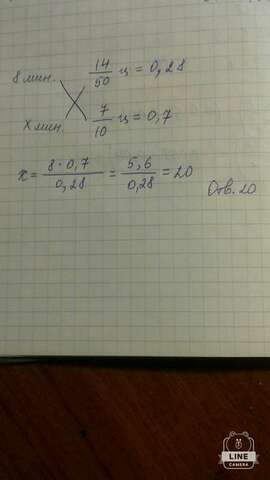 8 мин. 14/50 ц = 0,28
X мин. 7/10 ц = 0,7
x = 8·0,7/0,28 = 5,6/0,28 = 20
Отв. 20
LINE
CAMERA